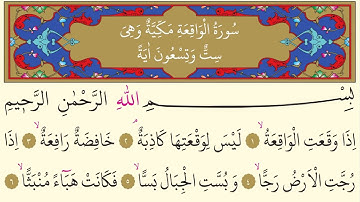 سُورَةُ الْوَاقِعَةِ مَكِّيَّةٌ وَهِيَ
سِتٌّ وَتِسْعُونَ اٰيَةً
بِسْــــــمِ اللّٰهِ الرَّحْمٰنِ الرَّح۪يمِ
اِذَا وَقَعَتِ الْوَاقِعَةُۙ ﴿١﴾ لَيْسَ لِوَقْعَتِهَا كَاذِبَةٌۢ ﴿٢﴾ خَافِضَةٌ رَافِعَةٌۙ ﴿٣﴾ اِذَا
رُجَّتِ الْاَرْضُ رَجًّاۙ ﴿٤﴾ وَبُسَّتِ الْجِبَالُ بَسًّاۙ ﴿٥﴾ فَكَانَتْ هَبَٓاءً مُنْبَثًّاۙ ﴿٦﴾